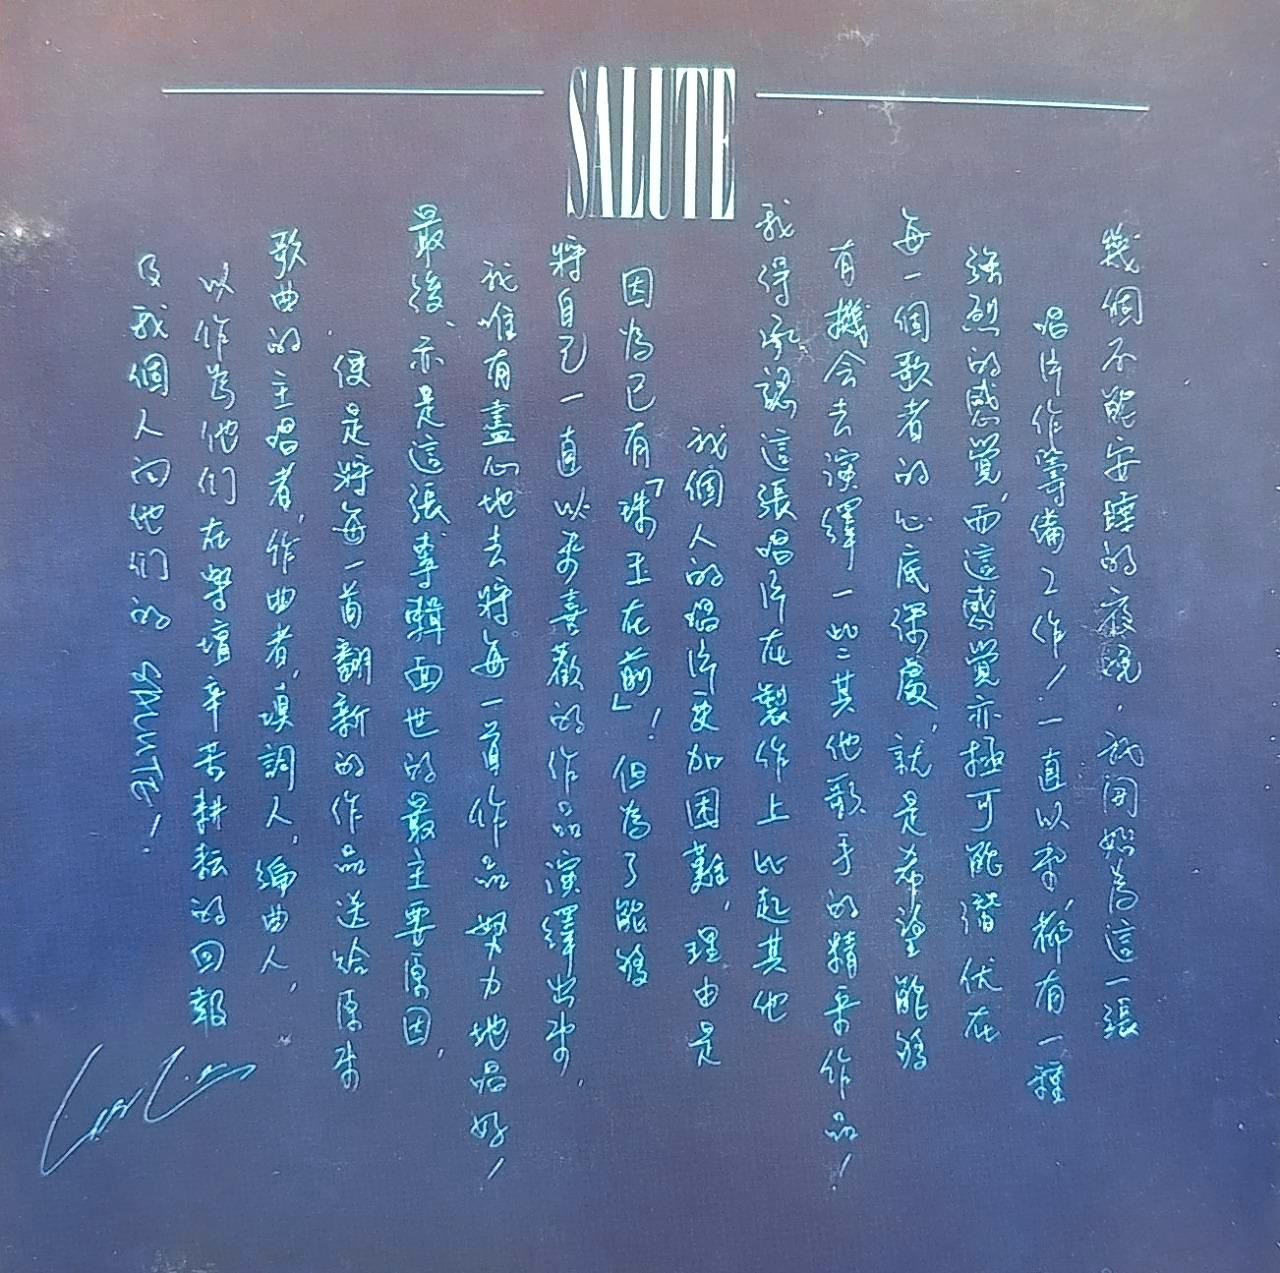 SALUTE
幾個不能安睡的夜晚，我開始為這一張
唱片作籌備工作！一直以來，都有一種
強烈的感覺，而這感覺亦極可能潛伏在
每一個歌者的心底深處，就是希望能夠
有機會去演繹一些其他歌手的精彩作品！
我得承認這張唱片在製作上比起其他
我個人的唱片更加困難，理由是
因為已有「珠玉在前」！但為了能夠
將自己一直以來喜歡的作品演繹出來，
我唯有盡心地去將每一首作品努力地唱好！
最後，亦是這張專輯面世的最主要原因，
便是將每一首翻新的作品送給原來
歌曲的主唱者，作曲者，填詞人，編曲人，
以作為他們在樂壇辛苦耕耘的回報
及我個人向他們的SALUTE！